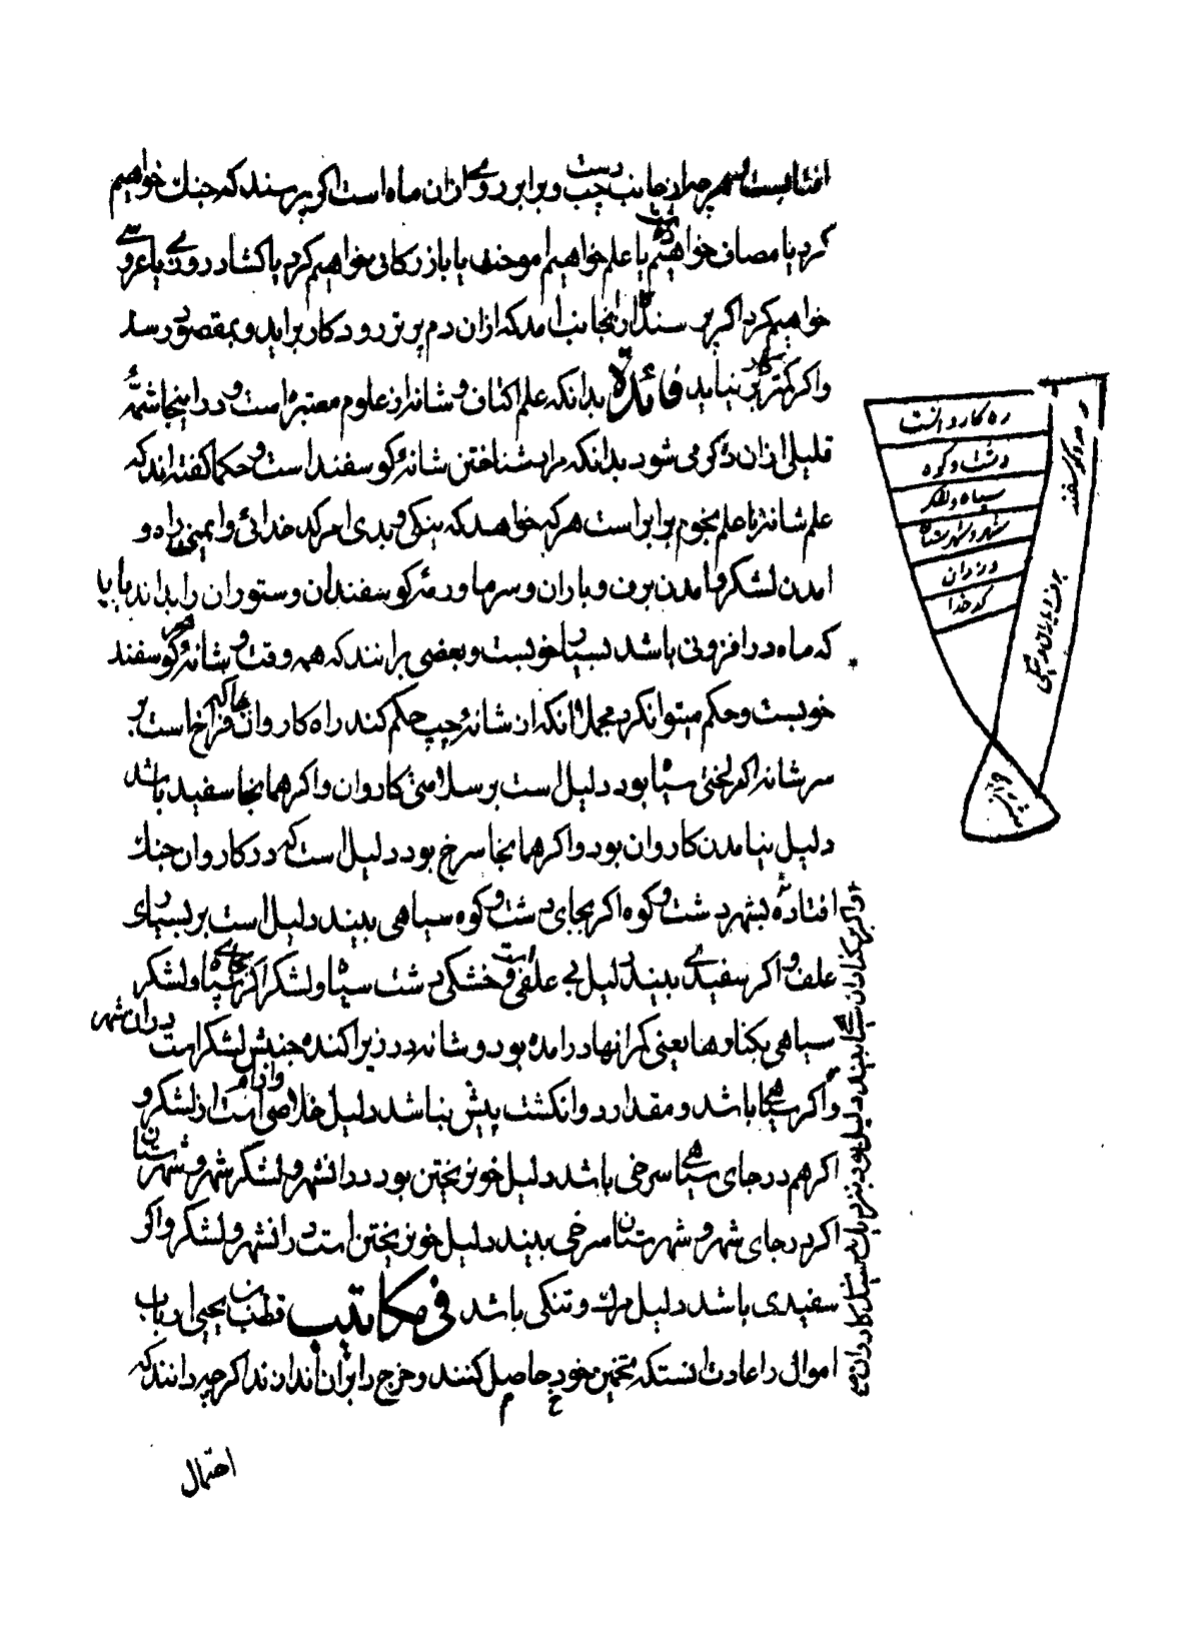 افتابست هر چه از جانب دست چپ و برابر روی ازان ماه است اکر پرسند که جنك خواهیم
کرد یا مصاف خواهیم یا علم خواهیم اموخت یا بازرکانی خواهیم کرد یا کشادروزی یا عروسی
خواهیم کرد اکر پرسنده ازانجانب امد که ازان دم برتر رود کار براید و بمقصود رسد
واکر کمتر بر نیاید فائدة بدانکه علم اکتاف و شانه از علوم معتبره است و در اینجا شمهٔ
قلیلی ازان ذکر می شود بدانکه مراد شناختن شانهٔ کوسفند است و حکما کفته اند که
علم شانه با علم نجوم برابر است هر که خواهد که نیکی و بدی امر کدخدائی و ایمنی راه و
امدن لشکر و امدن برف و باران و سرما و رمهٔ کوسفندان و ستوران را بداند باید
که ماه در افزونی باشد بسیار خوبست و بعضی برانند که همه وقت و هر شانهٔ کوسفند
خوبست و حکم میتوانکرد مجملا انکه از شانهٔ چپ حکم کند راه کاروان فراخ است بر
سر شانه اکر لختی سیاه بود دلیل است بر سلامتی کاروان واکر همانجا سفید باشد
دلیل نیامدن کاروان بود واکر همانجا سرخ بود دلیل است که در کاروان جنك
افتاده بشهر دشت و کوه اکر بجای دشت و کوه سیاهی بیند دلیل است بر بسیاری
علف و اکر سفیدی بیند دلیل بی علفی و خشکی دشت سپاه ولشکر اکر بجای سپاه ولشکر
سیاهی بکنارها یعنی کرانها درامده بود و شانه در زیر اکنده جنبش لشکر است دران شهر
واکر سیاهی انجا باشد و مقدار دو انکشت پیش نباشد دلیل خلاصی است از لشکر و
اکر هم در جای سیاهی سرخی باشد دلیل خونریختن بود در انشهر و لشکر شهر و شهرستان
اکر در جای شهر و شهرستان سرخی بیند دلیل خونریختن است در انشهر و لشکر واکر
سفیدی باشد دلیل مرك و تنکی باشد فی مکاتیب قطب بن یحیی ارباب
اموال را عادت انستکه تخمین خود حاصل کنند و خرج را بران اندازند اکر چه دانند که
احتمال
ره کاروانست
دشت و کوه
سپاه و لشکر
شهر و شهرستان
دزدان
کدخدا